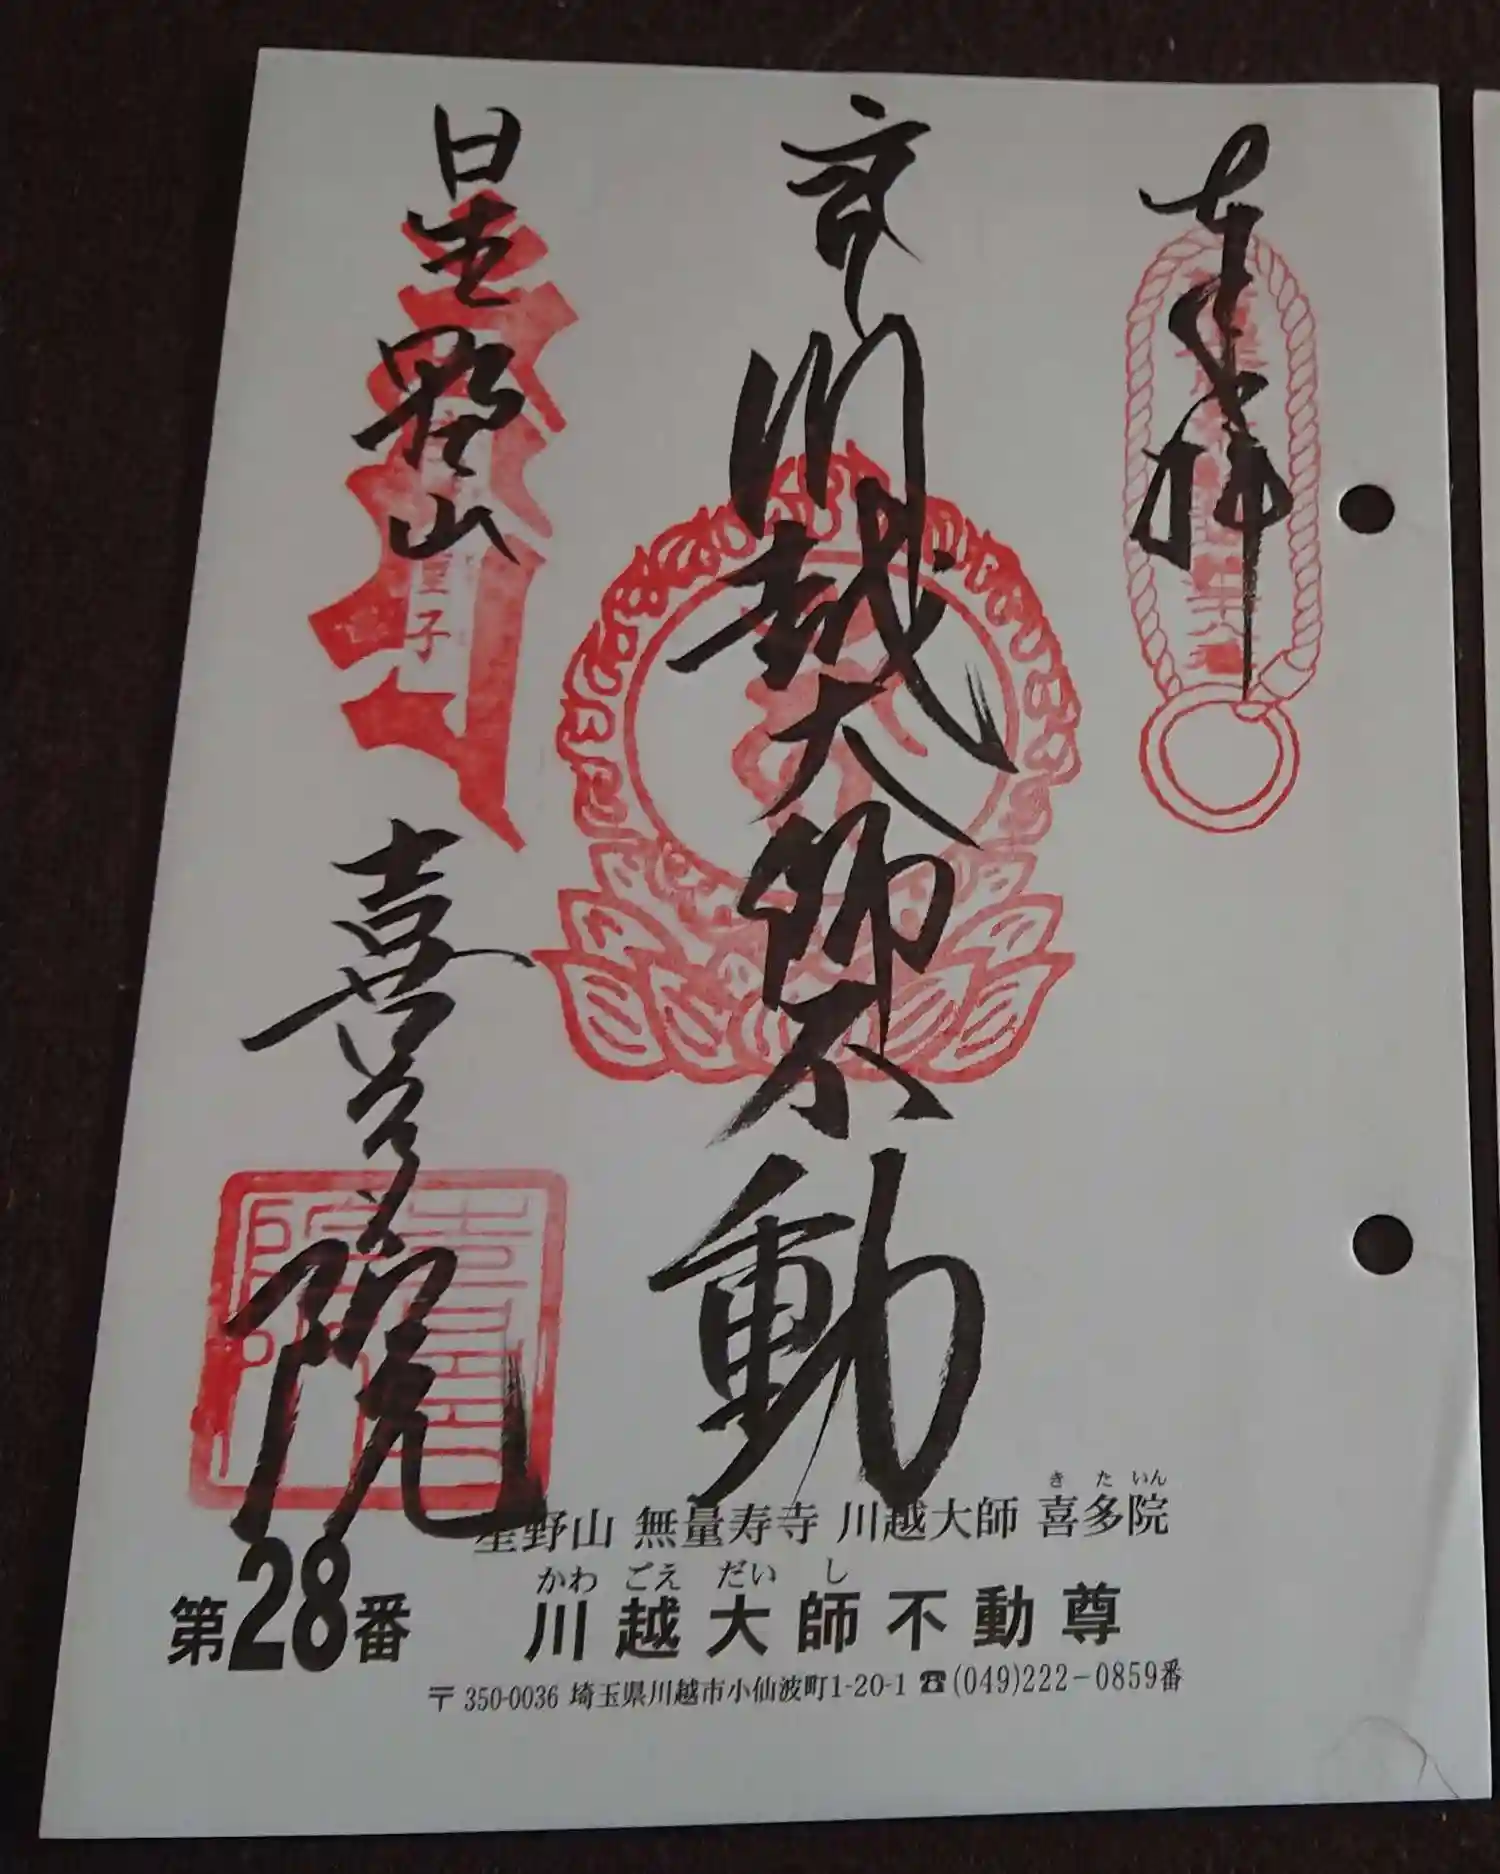 奉拝
川越大師不動
星野山 喜多院
童子
星野山 無量寿寺 川越大師 喜多院
きたいん
第28番
かわごえだいし
川越大師不動尊
〒350-0036 埼玉県川越市小仙波町1-20-1 ☎(049)222-0859番